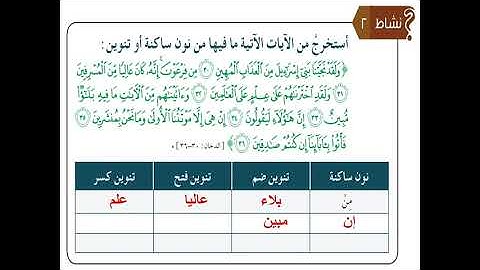 نشاط ٢
أستخرجُ من الآيات الآتية ما فيها من نون ساكنة أو تنوين :
﴿ وَلَقَدْ نَجَّيْنَا بَنِي إِسْرَائِيلَ مِنَ الْعَذَابِ الْمُهِينِ ٣٠ مِن فِرْعَوْنَ إِنَّهُ كَانَ عَالِيًا مِّنَ الْمُسْرِفِينَ
٣١ وَلَقَدِ اخْتَرْنَاهُمْ عَلَى عِلْمٍ عَلَى الْعَالَمِينَ ٣٢ وَآتَيْنَاهُم مِّنَ الْآيَاتِ مَا فِيهِ بَلَاءٌ
مُّبِينٌ ٣٣ إِنَّ هَؤُلَاءِ لَيَقُولُونَ ٣٤ إِنْ هِيَ إِلَّا مَوْتَتُنَا الْأُولَى وَمَا نَحْنُ بِمُنشَرِينَ ٣٥
فَأْتُوا بِآبَائِنَا إِن كُنتُمْ صَادِقِينَ ٣٦ ﴾ [الدخان: ٣٠-٣٦] .
نون ساكنة تنوين ضم تنوين فتح تنوين كسر
مِنْ بلاء عاليا علم
إن مبين